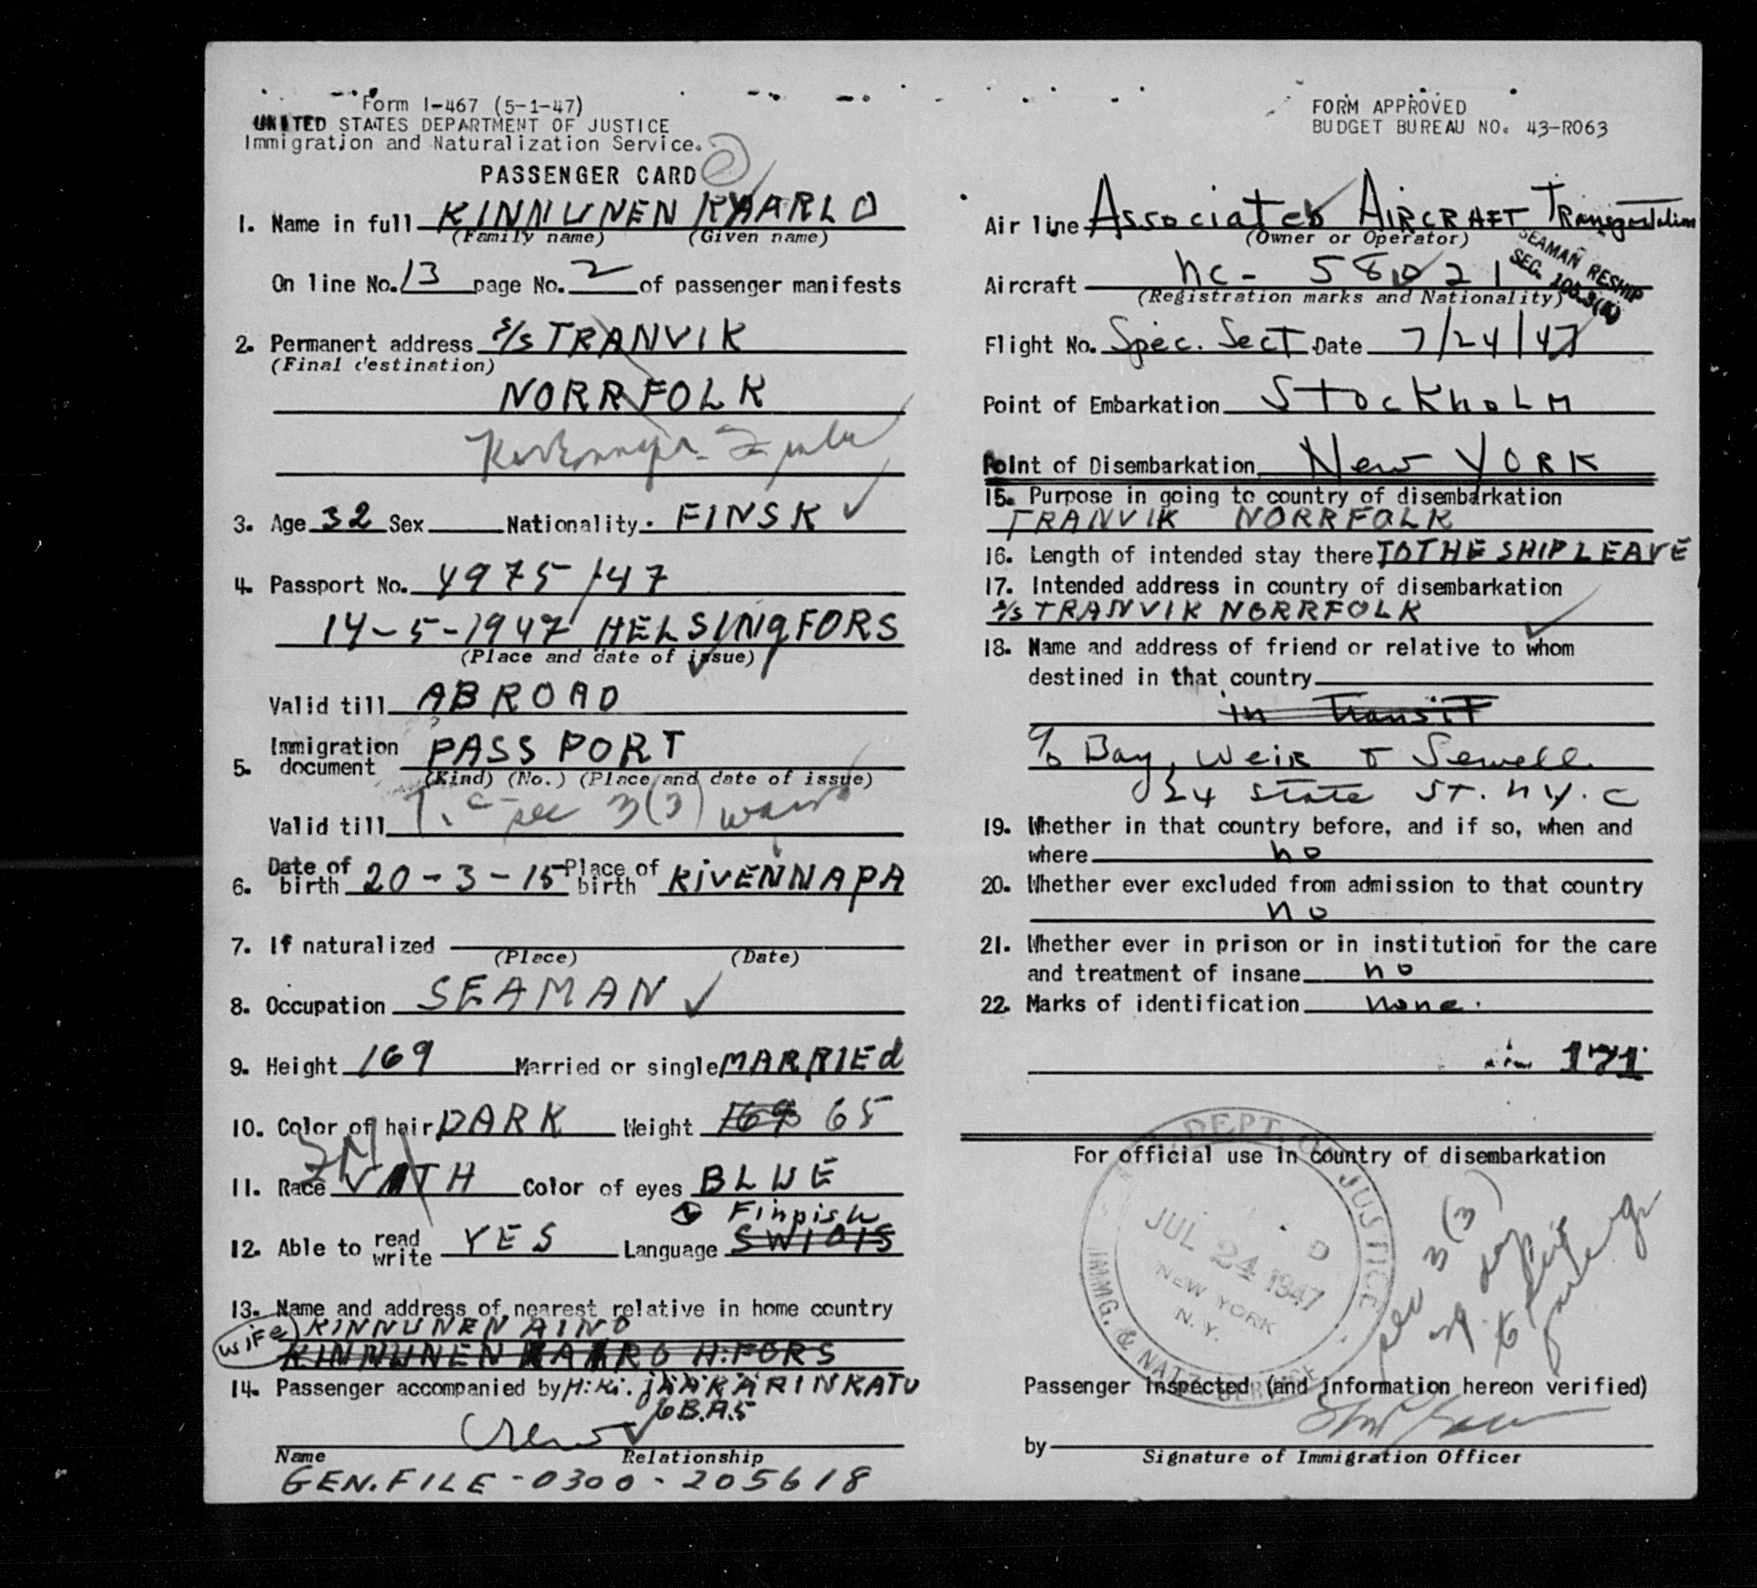 Form I-467 (5-1-47)
UNITED STATES DEPARTMENT OF JUSTICE
Immigration and Naturalization Service.
PASSENGER CARD
1. Name in full KINNUNEN KAARLO
(Family name) (Given name)
On line No. 13 page No. 2 of passenger manifests
2. Permanent address s/s TRANVIK
(Final destination)
NORRFOLK
3. Age 32 Sex Nationality. FINSK
4. Passport No. 4975/47
14-5-1947 HELSINGFORS
(Place and date of issue)
Valid till ABROAD
5. Immigration document PASSPORT
(Kind) (No.) (Place and date of issue)
sec 3(3)
Valid till
6. Date of birth 20-3-15 Place of birth KIVENNAPA
7. If naturalized
(Place) (Date)
8. Occupation SEAMAN
9. Height 169 Married or single MARRIEd
10. Color of hair DARK Weight 169 65
11. Race Color of eyes BLUE
Finnish
12. Able to read write YES Language
13. Name and address of nearest relative in home country
wife KINNUNEN AINO
KINNUNEN H:FORS
14. Passenger accompanied by H:Ki. JÄÄKÄRINKATU
6B.A.5
Crew
Name Relationship
GEN.FILE-0300-205618
FORM APPROVED
BUDGET BUREAU NO. 43-R063
Air line Associated AIRCRAFT Transportation
(Owner or Operator)
SEAMAN RESHIP
Aircraft NC- 58021
(Registration marks and Nationality)
Flight No. Spec. Sect Date 7/24/47
Point of Embarkation STOCKHOLM
Point of Disembarkation New YORK
15. Purpose in going to country of disembarkation
TRANVIK NORRFOLK
16. Length of intended stay there TO THE SHIP LEAVE
17. Intended address in country of disembarkation
s/s TRANVIK NORRFOLK
18. Name and address of friend or relative to whom
destined in that country
in Transit
c/o Bay, Weir & Sewell
24 State ST. N.Y.C
19. Whether in that country before, and if so, when and
where no
20. Whether ever excluded from admission to that country
no
21. Whether ever in prison or in institution for the care
and treatment of insane no
22. Marks of identification none.
171
For official use in country of disembarkation
DEPT. OF JUSTICE
JUL 24 1947
NEW YORK
N. Y.
IMMG. & NATZ. SERVICE
sec 3(3)
Passenger inspected (and information hereon verified)
by
Signature of Immigration Officer